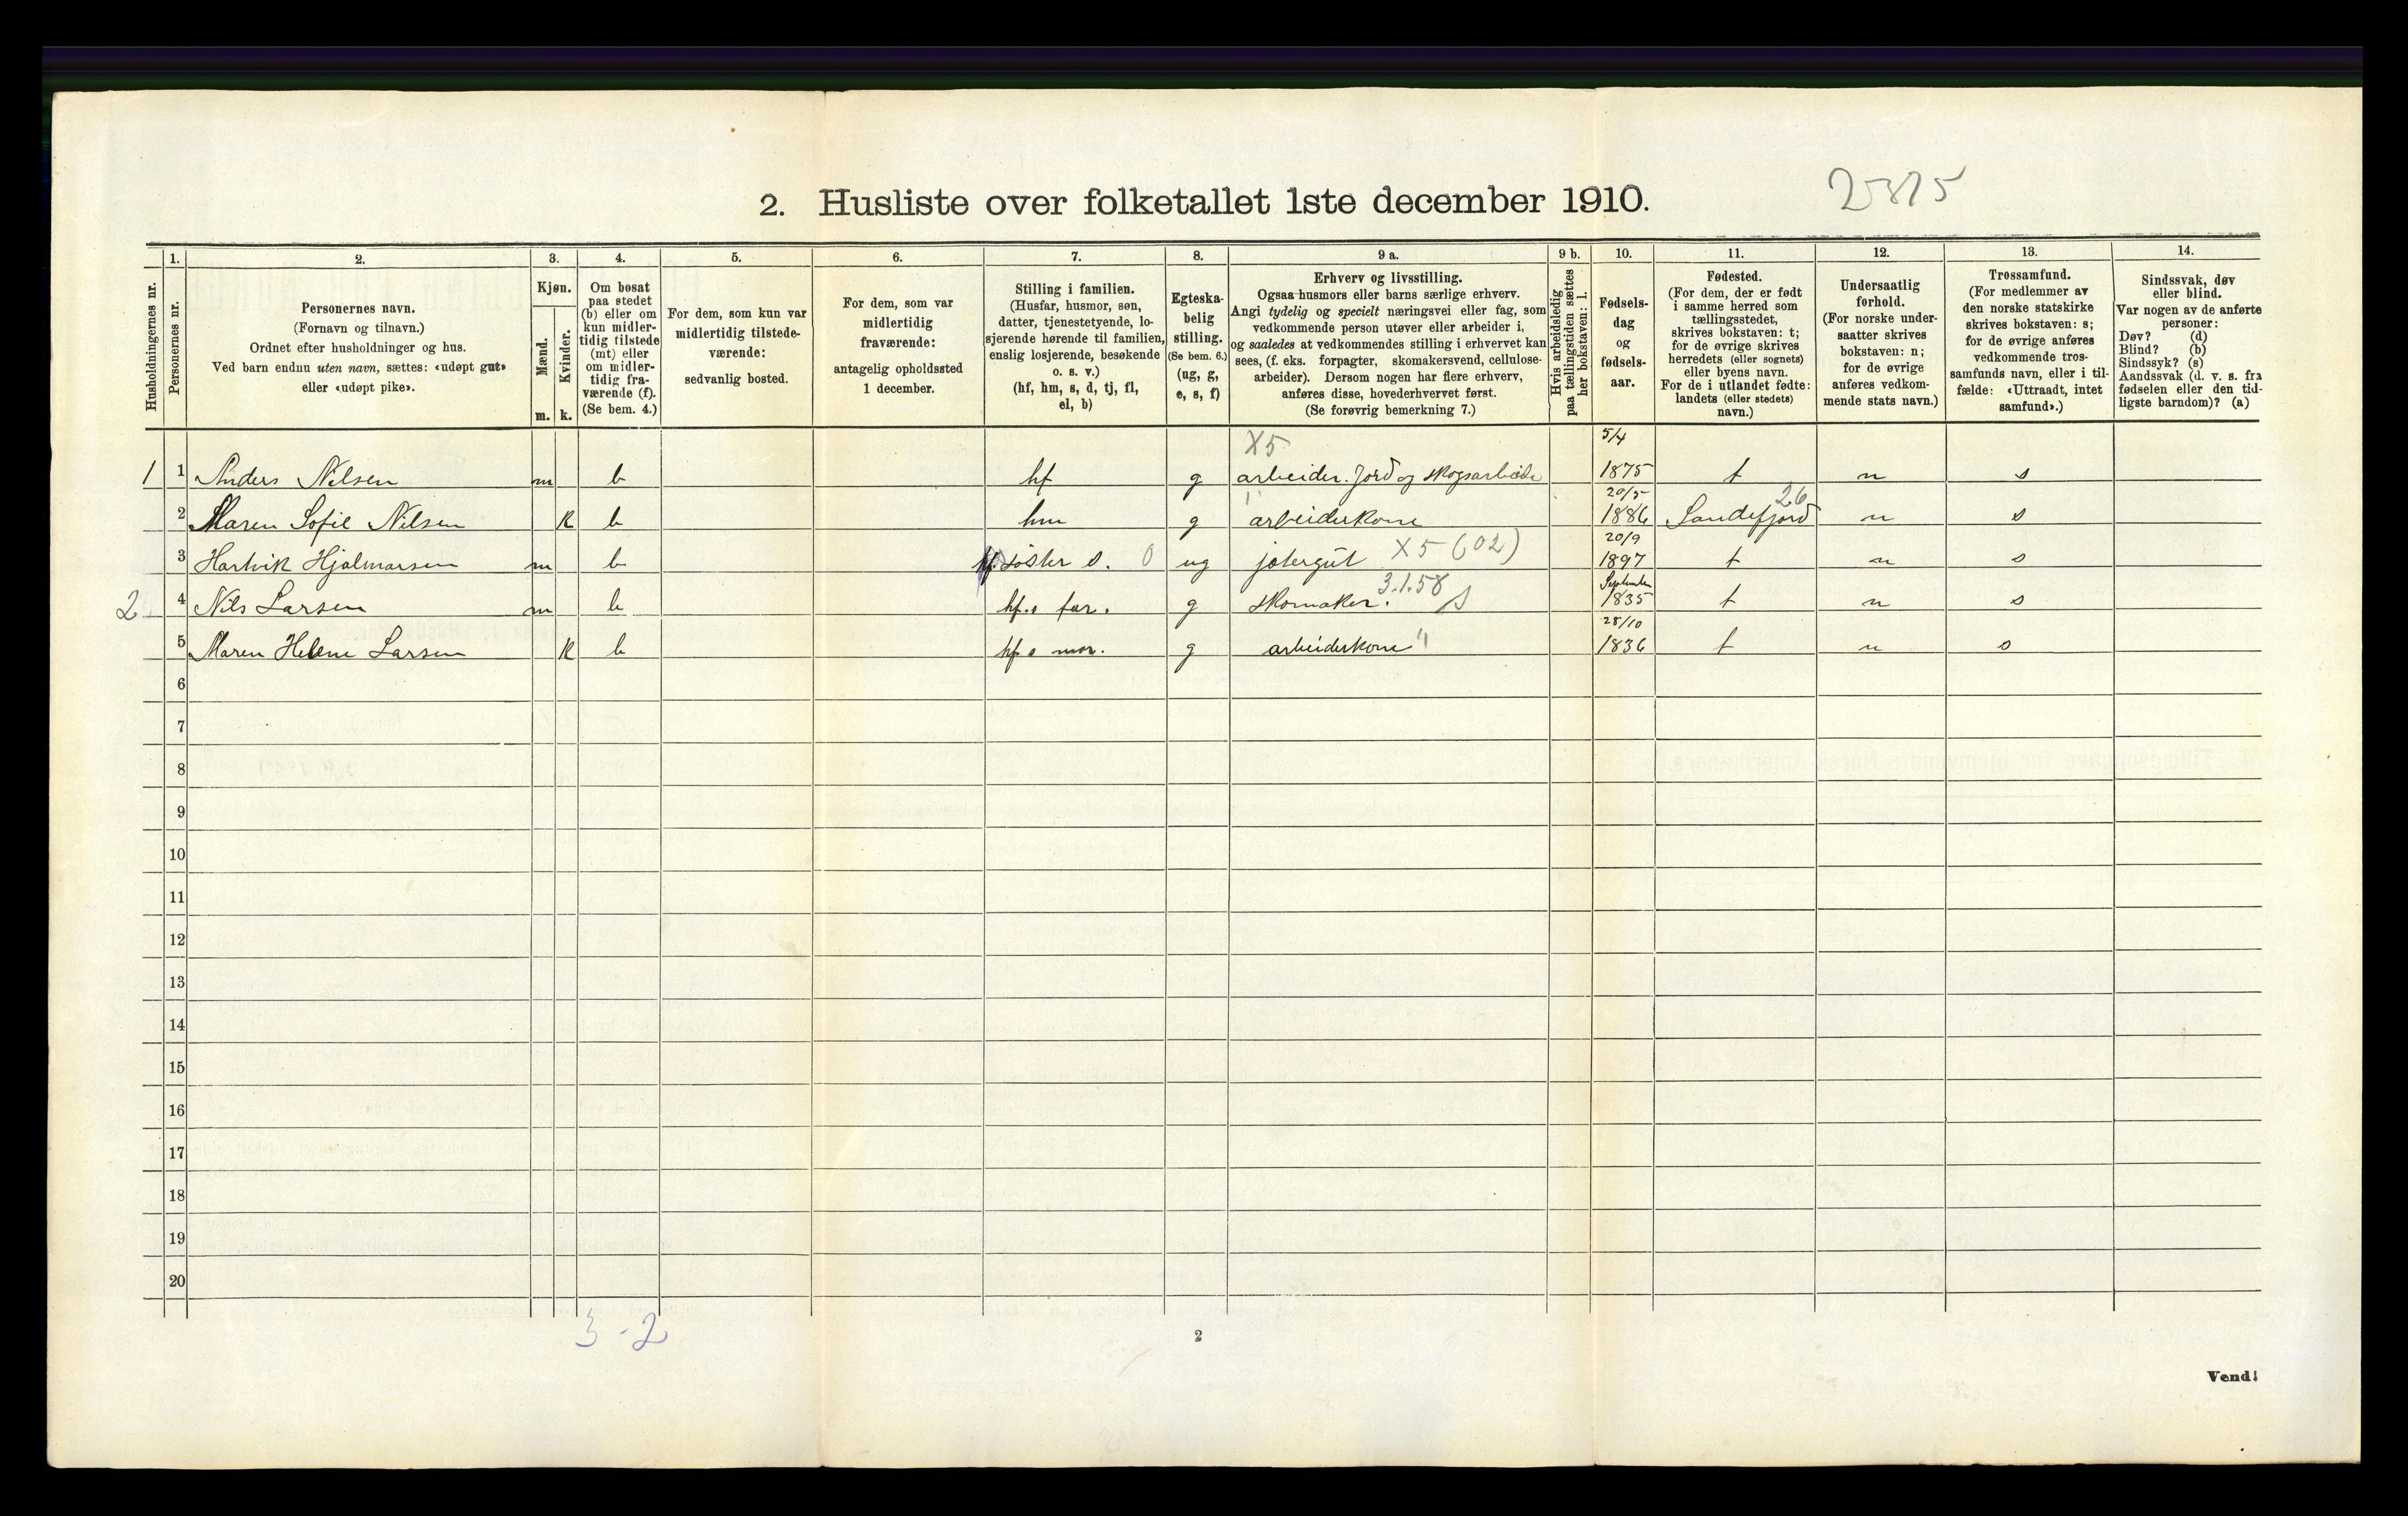 2. Husliste over folketallet 1ste december 1910.
2375
Husholdningernes nr.
1.
Personernes nr.
2.
Personernes navn.
(Fornavn og tilnavn.)
Ordnet efter husholdninger og hus.
Ved barn endnu uten navn, sættes: «udøpt gut»
eller «udøpt pike».
3.
Kjøn.
Mænd.
m.
Kvinder.
k.
4.
Om bosat
paa stedet
(b) eller om
kun midler-
tidig tilstede
(mt) eller
om midler-
tidig fra-
værende (f).
(Se bem. 4.)
5.
For dem, som kun var
midlertidig tilstede-
værende:
sedvanlig bosted.
6.
For dem, som var
midlertidig
fraværende:
antagelig opholdssted
1 december.
7.
Stilling i familien.
(Husfar, husmor, søn,
datter, tjenestetyende, lo-
sjerende hørende til familien,
enslig losjerende, besøkende
o. s. v.)
(hf, hm, s, d, tj, fl,
el, b)
8.
Egteska-
belig
stilling.
(Se bem. 6.)
(ug, g,
e, s, f)
9 a.
Erhverv og livsstilling.
Ogsaa husmors eller barns særlige erhverv.
Angi tydelig og specielt næringsvei eller fag, som
vedkommende person utøver eller arbeider i,
og saaledes at vedkommendes stilling i erhvervet kan
sees, (f. eks. forpagter, skomakersvend, cellulose-
arbeider). Dersom nogen har flere erhverv,
anføres disse, hovederhvervet først.
(Se forøvrig bemerkning 7.)
9 b.
Hvis arbeidsledig
paa tællingstiden sættes
her bokstaven: l.
10.
Fødsels-
dag
og
fødsels-
aar.
11.
Fødested.
(For dem, der er født
i samme herred som
tællingsstedet,
skrives bokstaven: t;
for de øvrige skrives
herredets (eller sognets)
eller byens navn.
For de i utlandet fødte:
landets (eller stedets)
navn.)
12.
Undersaatlig
forhold.
(For norske under-
saatter skrives
bokstaven: n;
for de øvrige
anføres vedkom-
mende stats navn.)
13.
Trossamfund.
(For medlemmer av
den norske statskirke
skrives bokstaven: s;
for de øvrige anføres
vedkommende tros-
samfunds navn, eller i til-
fælde: «Uttraadt, intet
samfund».)
14.
Sindssvak, døv
eller blind.
Var nogen av de anførte
personer:
Døv? (d)
Blind? (b)
Sindssyk? (s)
Aandssvak (d. v. s. fra
fødselen eller den tid-
ligste barndom)? (a)
X5 5/4
1 1 Anders Nilsen m b hf g arbeider. Jord og skogsarbeide 1875 t n s
20/5 26
2 Maren Sofie Nilsen k b hm g arbeiderkone 1886 Sandefjord n s
X5 (02) 20/9
3 Hartvik Hjalmarsen m b hf. söster s. 0 ug jætergut 1897 t n s
3.1.58 September
2 4 Nils Larsen m b hf.s far. g skomaker. s 1835 t n s
28/10
5 Maren Helene Larsen k b hf s mor. g arbeiderkone " 1836 t n s
6
7
8
9
10
11
12
13
14
15
16
17
18
19
20
3 - 2
2
Vend!